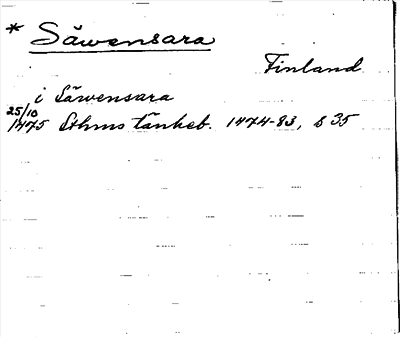 * Säwensara
Finland
i Säwensara
25/10
1475 Sthms tänkeb. 1474-83, s 35